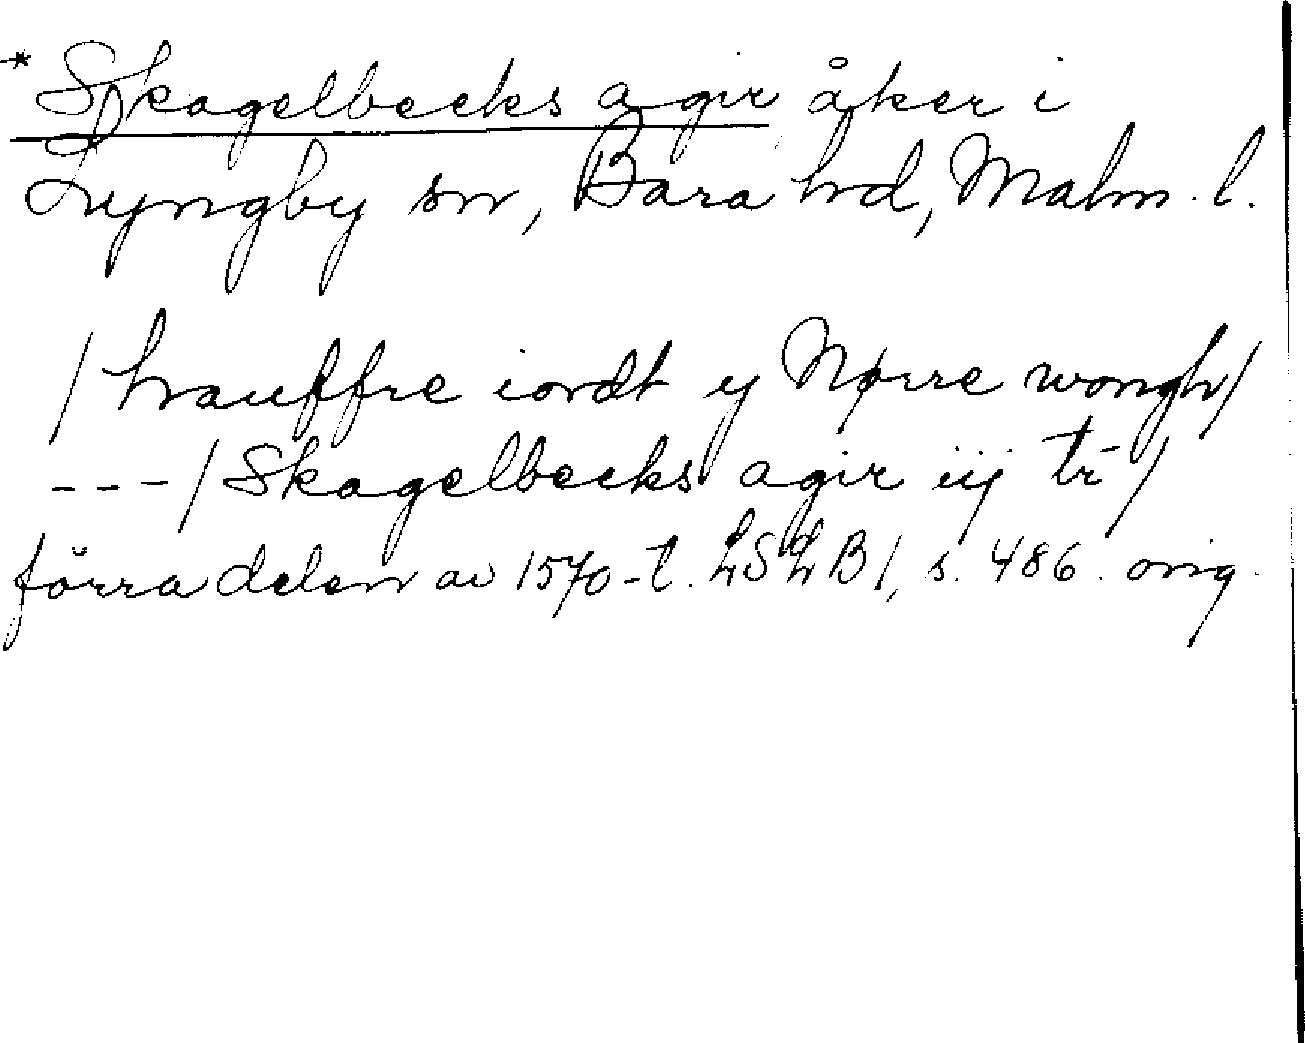 * Skagelbecks agir åker i
Lyngby sn, Bara hd, Malm. l.
/ hauffre iordt y Nørre wongh/
---/ Skagelbecks agir iij tr̄ /
förra delen av 1570-t. LSLB 1, s. 486. orig.